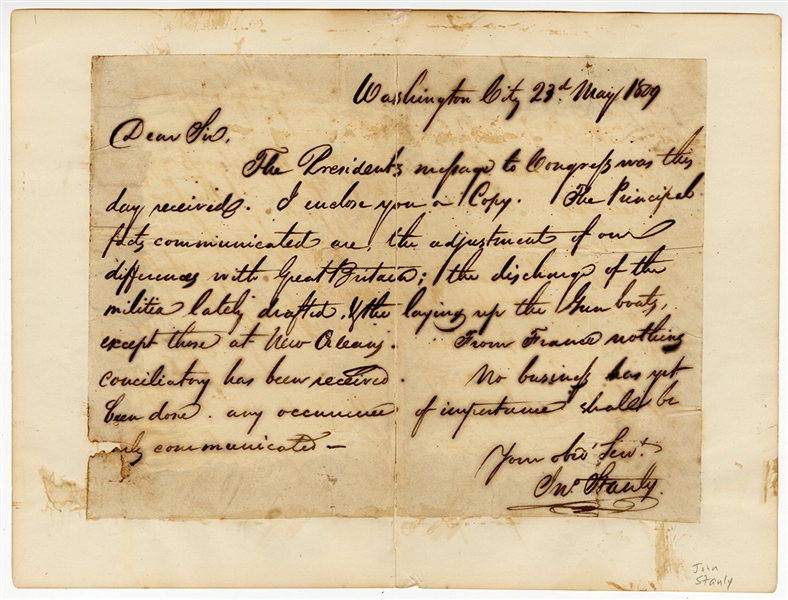 Washington City 23d. May 1809
Dear Sir,
The President's message to Congress was this
day received. I enclose you a Copy. The Principal
facts communicated are, the adjustment of our
differences with Great Britain; the discharge of the
militia lately drafted, & the laying up the Gun boats,
except those at New Orleans. From France nothing
conciliatory has been received. No business has yet
been done. any occurrence of importance shall be
communicated —
Your obed.t Serv.t
Jno. Stanly.
John
Stanly
1